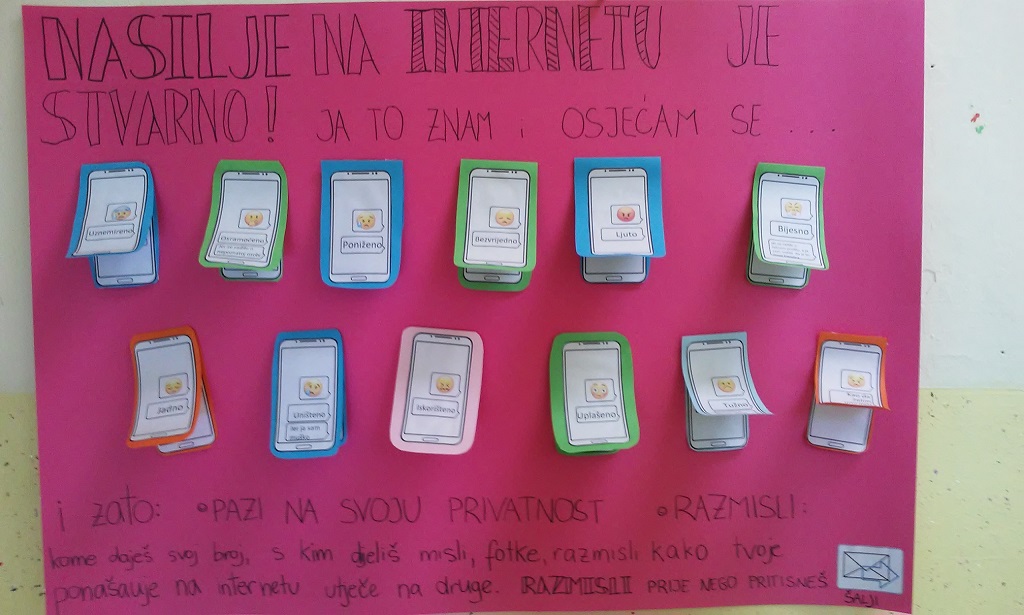 NASILJE NA INTERNETU JE
STVARNO! JA TO ZNAM i OSJEĆAM SE ....
Uznemireno
Osramoćeno
Poniženo
Bezvrijedno
Ljuto
Bijesno
Jadno
Uništeno
No ja sam
muško
Iskorišteno
Uplašeno
Tužno
Kao da
i zato: • PAZI NA SVOJU PRIVATNOST • RAZMISLI:
kome daješ svoj broj, s kim djeliš misli, fotke, razmisli kako tvoje
ponašanje na internetu utječe na druge. RAZMISLI PRIJE NEGO PRITISNEŠ
ŠALJI